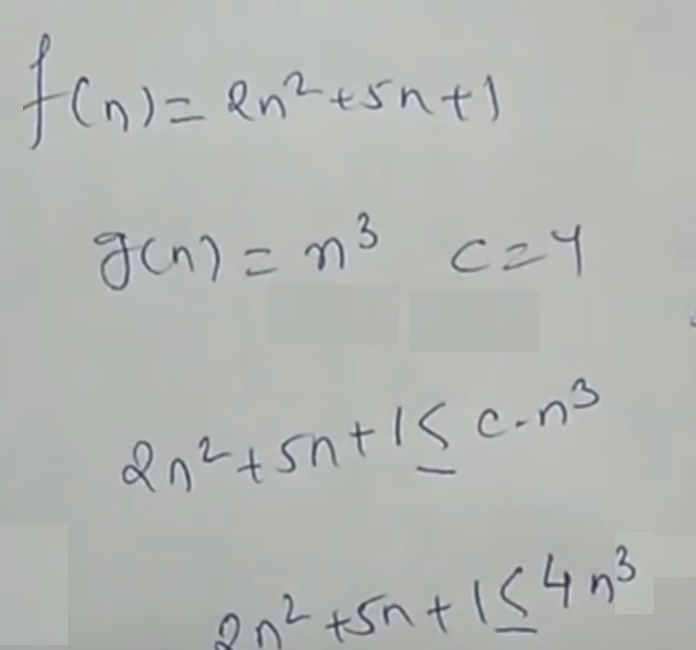 f(n) = 2n²+5n+1
g(n) = n³ c=4
2n²+5n+1 ≤ c.n³
2n²+5n+1 ≤ 4n³